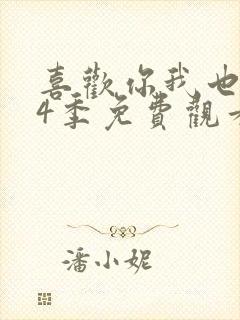 喜歡你我也
4季免費觀看
潘小妮